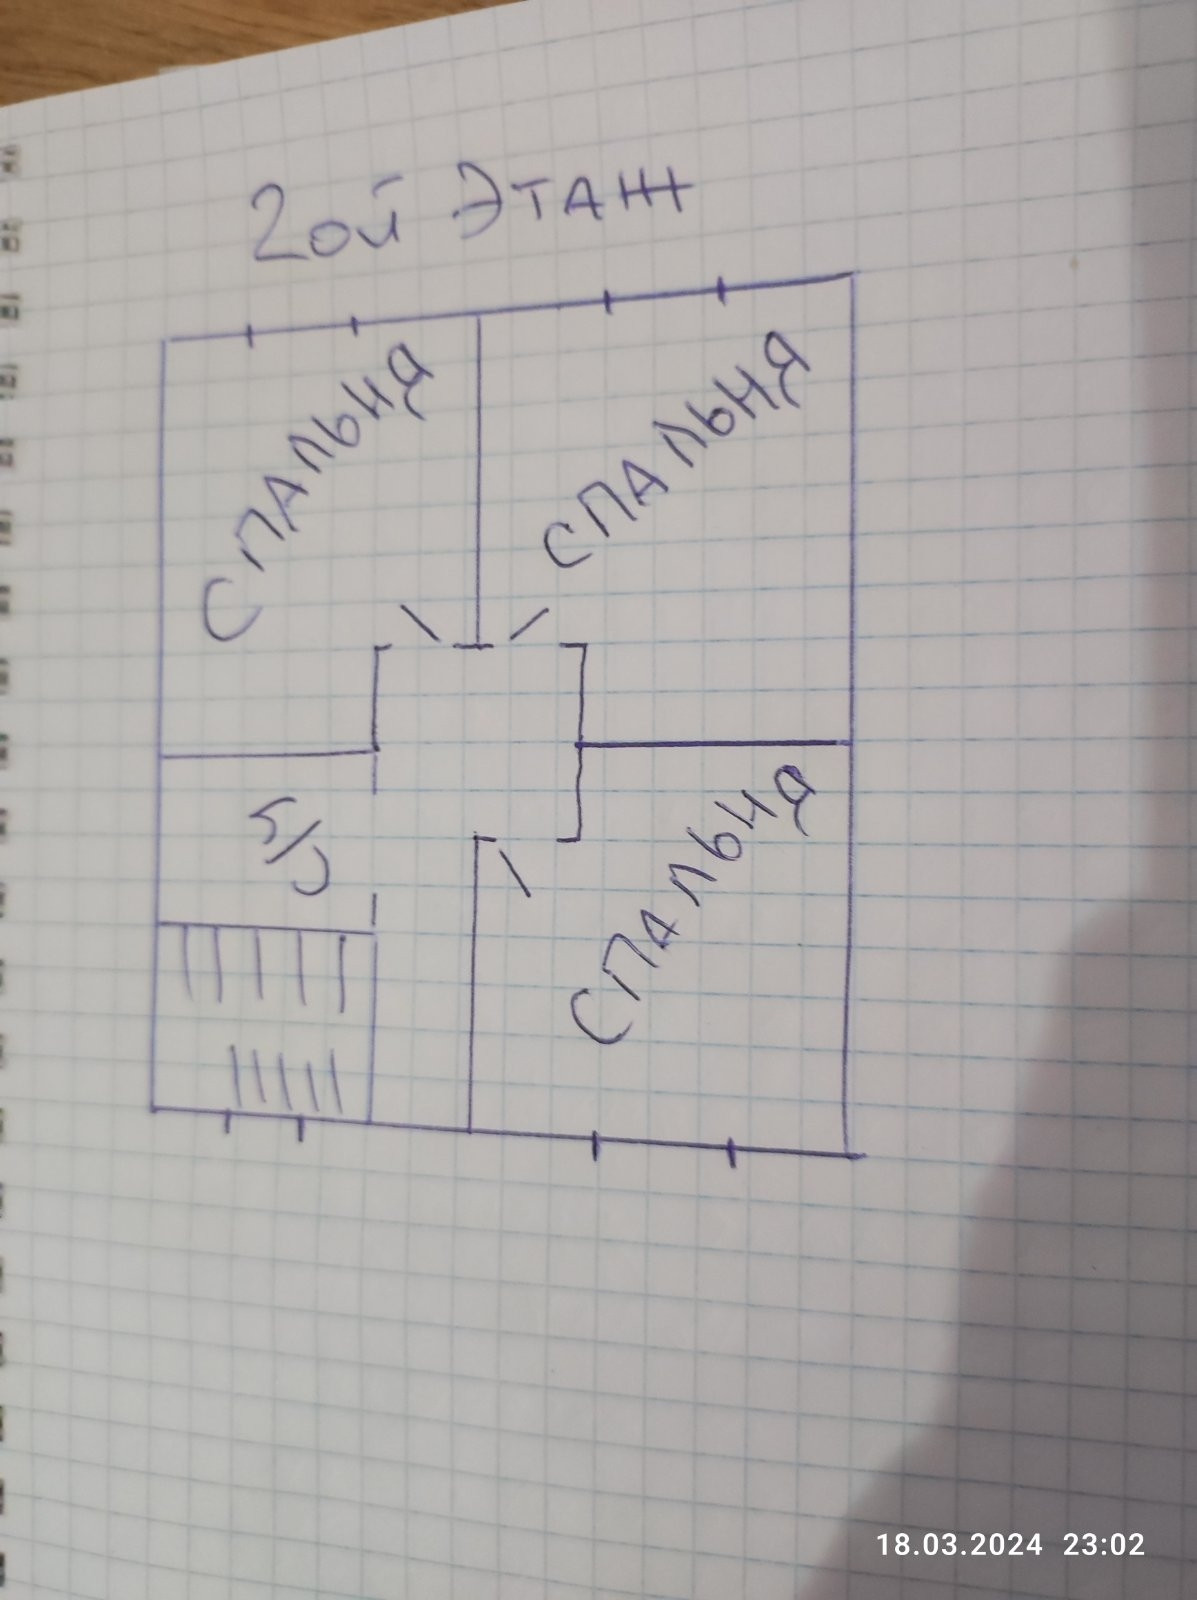 2ой ЭТАЖ
СПАЛЬНЯ
СПАЛЬНЯ
С/У
СПАЛЬНЯ
18.03.2024 23:02